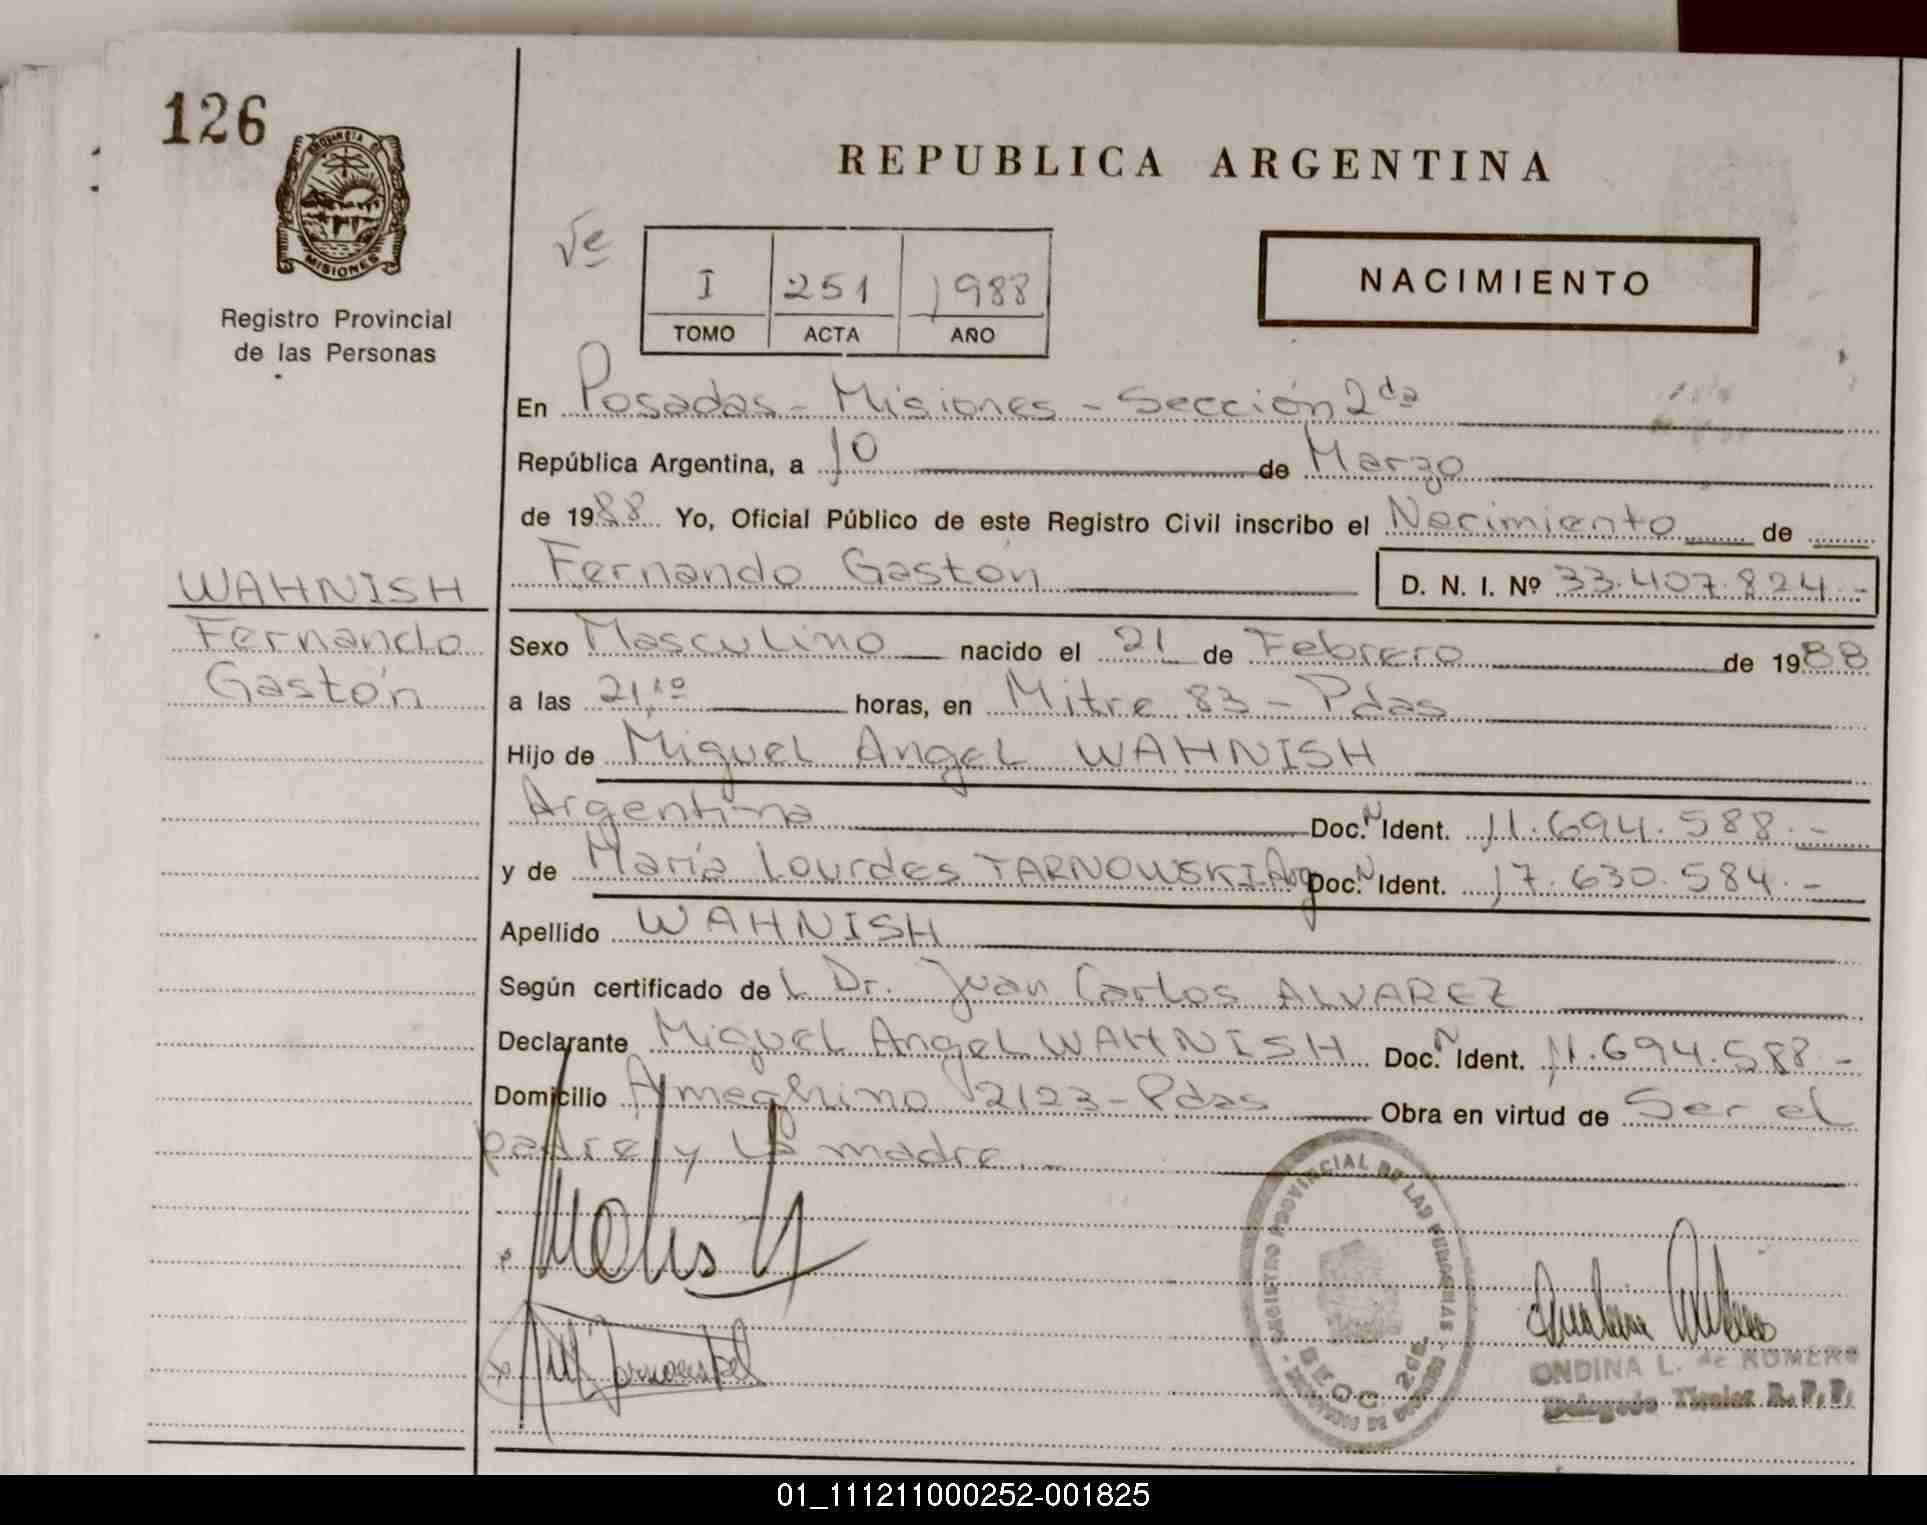 126
MISIONES
Registro Provincial
de las Personas
REPUBLICA ARGENTINA
I 251 1988
TOMO ACTA AÑO
NACIMIENTO
En Posadas - Misiones - Sección 2da
República Argentina, a 10 de Marzo
de 1988 Yo, Oficial Público de este Registro Civil inscribo el Nacimiento de
Fernando Gastón D. N. I. Nº 33.407.824.-
WAHNISH
Fernando
Gastón
Sexo Masculino nacido el 21 de Febrero de 1988
a las 21,10 horas, en Mitre 83 - Pdas
Hijo de Miguel Angel WAHNISH
Argentina Doc. N Ident. 11.694.588.-
y de María Lourdes TARNOWSKI Arg Doc. N Ident. 17.630.584.-
Apellido WAHNISH
Según certificado del Dr. Juan Carlos ALVAREZ
Declarante Miguel Angel WAHNISH Doc. N Ident. 11.694.588-
Domicilio Ameghino 2123 - Pdas Obra en virtud de Ser el
padre y la madre.-
REGISTRO PROVINCIAL DE LAS PERSONAS
SECC. 2da.
ONDINA L. de ROMERO
Delegada Titular R.P.P.
01_111211000252-001825